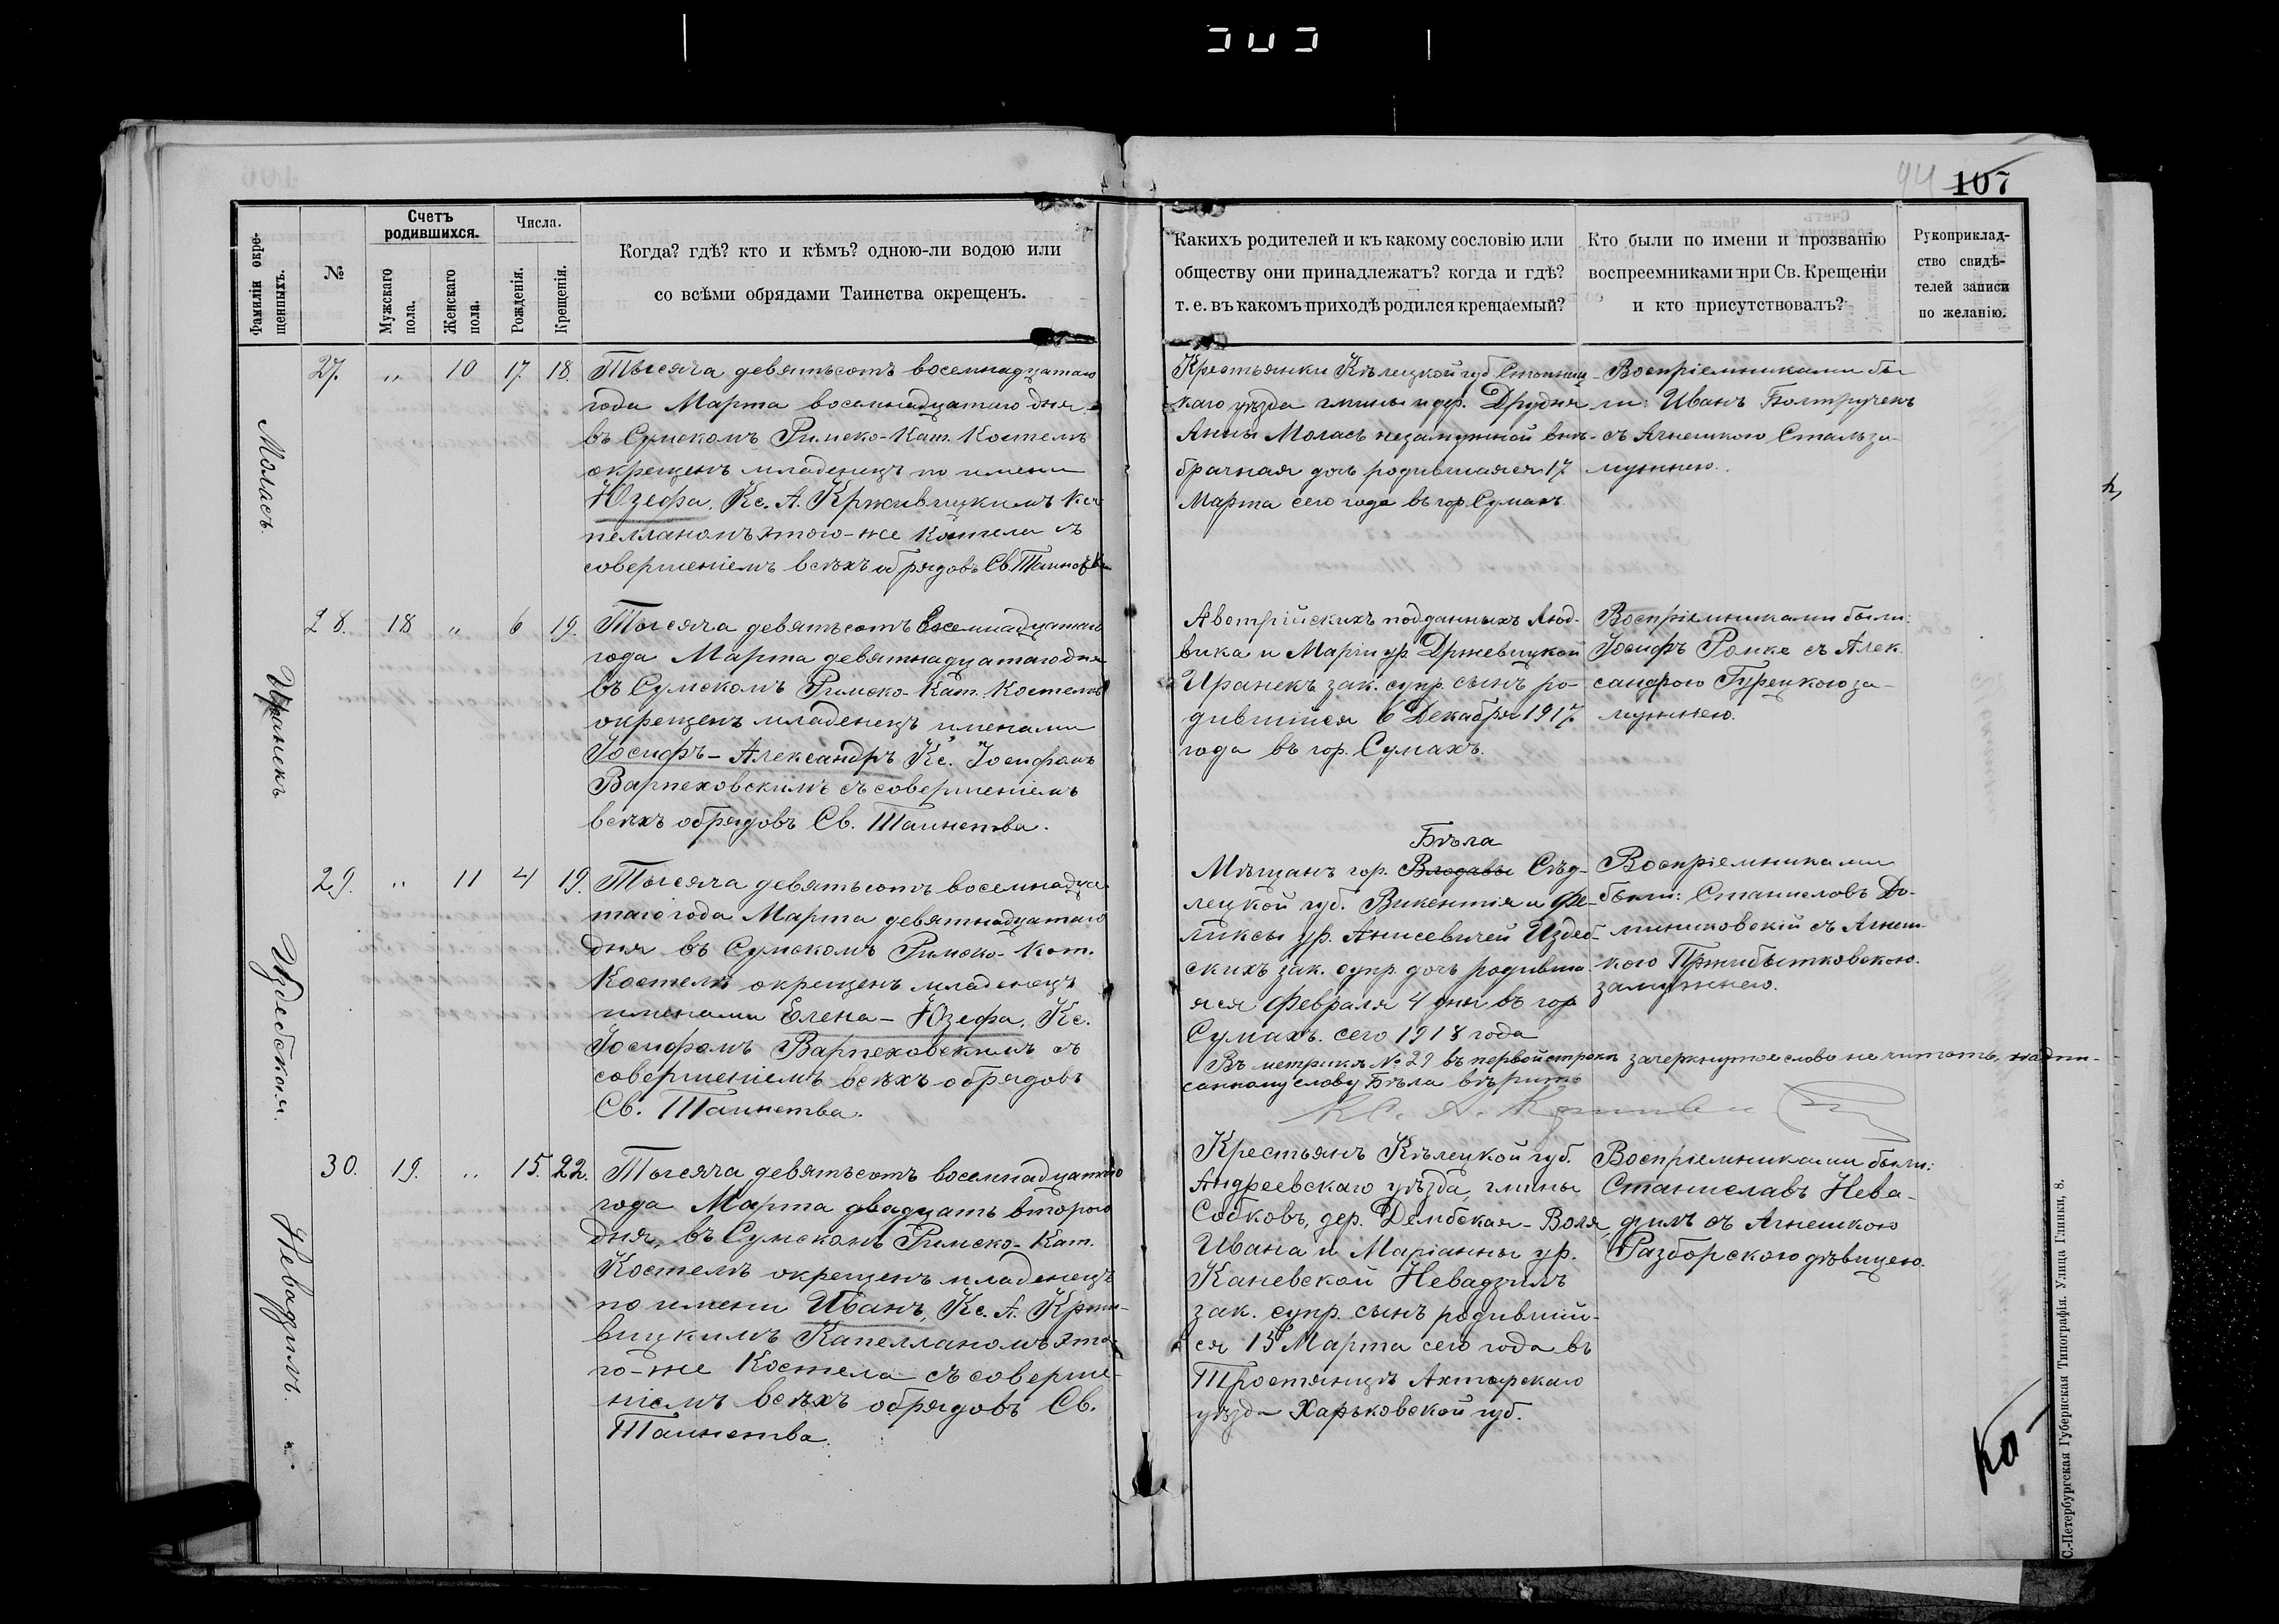 94 107
Фамиліи окре-
щенныхъ.
№
Счетъ
родившихся.
Мужскаго
пола.
Женскаго
пола.
Числа.
Рожденія.
Крещенія.
Когда? гдѣ? кто и кѣмъ? одною-ли водою или
со всѣми обрядами Таинства окрещенъ.
Какихъ родителей и къ какому сословію или
обществу они принадлежатъ? когда и гдѣ?
т. е. въ какомъ приходѣ родился крещаемый?
Кто были по имени и прозванію
воспреемниками при Св. Крещеніи
и кто присутствовалъ?
Рукоприклад-
ство свидѣ-
телей записи
по желанію.
Моласъ.
27. „ 10 17. 18.
Тысяча девятьсотъ восемнадцатаго
года Марта восемнадцатаго дня
въ Сумскомъ Римско-Кат. Костелѣ
окрещенъ младенецъ по имени
Юзефа, Кс. А. Крживицкимъ Ка-
пелланомъ этого-же Костела съ
совершеніемъ всѣхъ обрядовъ Св. Таинства
Крестьянки Кѣлецкой губ. Стопниц-
каго уѣзда гмины и дер. Друдня
Анны Моласъ незамужней внѣ-
брачная дочь родившаяся 17
Марта сего года въ гор. Сумахъ
Воспріемниками бы-
ли: Иванъ Болтрученъ
съ Агнешкою Сталь за-
мужнею.
Иранекъ
28. 18 „ 6 19.
Тысяча девятьсотъ восемнадцатаго
года Марта девятнадцатаго дня
въ Сумскомъ Римско-Кат. Костелѣ
окрещенъ младенецъ именами
Іосифъ-Александръ Кс. Іосифомъ
Варпеховскимъ съ совершеніемъ
всѣхъ обрядовъ Св. Таинства.
Австрійскихъ подданныхъ Люд-
вика и Маріи ур. Држевицкой
Иранекъ зак. супр. сынъ ро-
дившійся 6 Декабря 1917
года въ гор. Сумахъ.
Воспріемниками были:
Іосифъ Ронке съ Алек-
сандрою Гурецкою за-
мужнею.
Издебская.
29. „ 11 4 19.
Тысяча девятьсотъ восемнадца-
таго года Марта девятнадцатаго
дня въ Сумскомъ Римско-Кат.
Костелѣ окрещенъ младенецъ
именами Елена-Юзефа, Кс.
Іосифомъ Варпеховскимъ съ
совершеніемъ всѣхъ обрядовъ
Св. Таинства.
Бѣла
Мѣщанъ гор. Влодавы Сѣд-
лецкой губ. Викентія и Фе-
ликсы ур. Анисевичей Издеб-
скихъ зак. супр. дочь родивша-
яся Февраля 4 дня въ гор.
Сумахъ. сего 1918 года
Воспріемниками
были: Станиславъ До-
миниковскій съ Агнеш-
кою Пржибытковскою
замужнею.
Въ метрикѣ № 29 въ первой строкѣ зачеркнутое слово не читать, надпи-
санному слову Бѣла вѣрить
Кс. А. Крживи
Невадзилъ.
30. 19. „ 15. 22.
Тысяча девятьсотъ восемнадцатаго
года Марта двадцать второго
дня, въ Сумскомъ Римско-Кат.
Костелѣ окрещенъ младенецъ
по имени Иванъ, Кс. А. Кржи-
вицкимъ Капелланомъ это-
го-же Костела съ соверше-
ніемъ всѣхъ обрядовъ Св.
Таинства.
Крестьянъ Кѣлецкой губ.
Андреевскаго уѣзда, гмины
Собковъ, дер. Дембская-Воля
Ивана и Маріанны ур.
Каневской Невадзилъ
зак. супр. сынъ родивший-
ся 15 Марта сего года въ
Тростянцѣ Ахтырскаго
уѣзда Харьковской губ.
Воспріемниками были:
Станиславъ Нева-
дзилъ съ Агнешкою
Разборскою дѣвицею.
С.-Петербургская Губернская Типографія. Улица Глинки, 8.